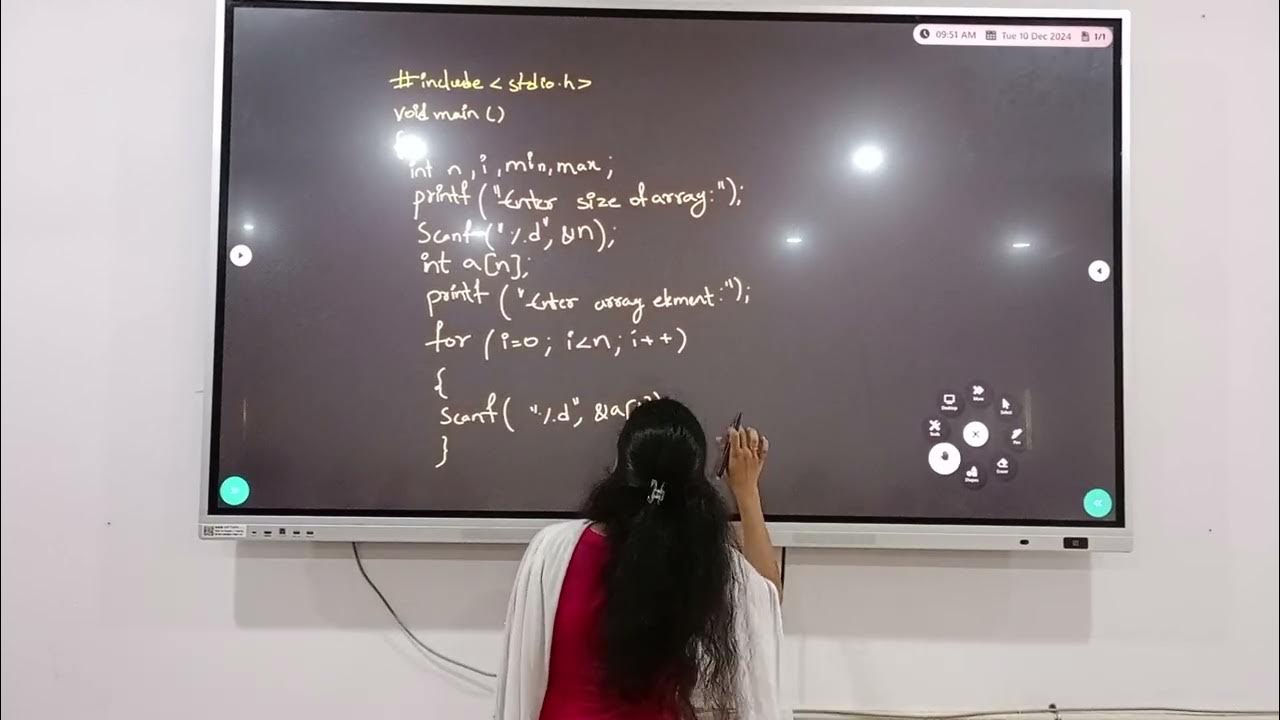 09:51 AM Tue 10 Dec 2024 1/1
#include <stdio.h>
void main ()
{
int n, i, min, max;
printf ("Enter size of array:");
Scanf ("%d", &n);
int a[n];
printf ("Enter array element:");
for (i=0; i<n; i++)
{
Scanf ( "%d", &a[i])
}
Desktop
More
Select
Tools
Pen
Shapes
Eraser